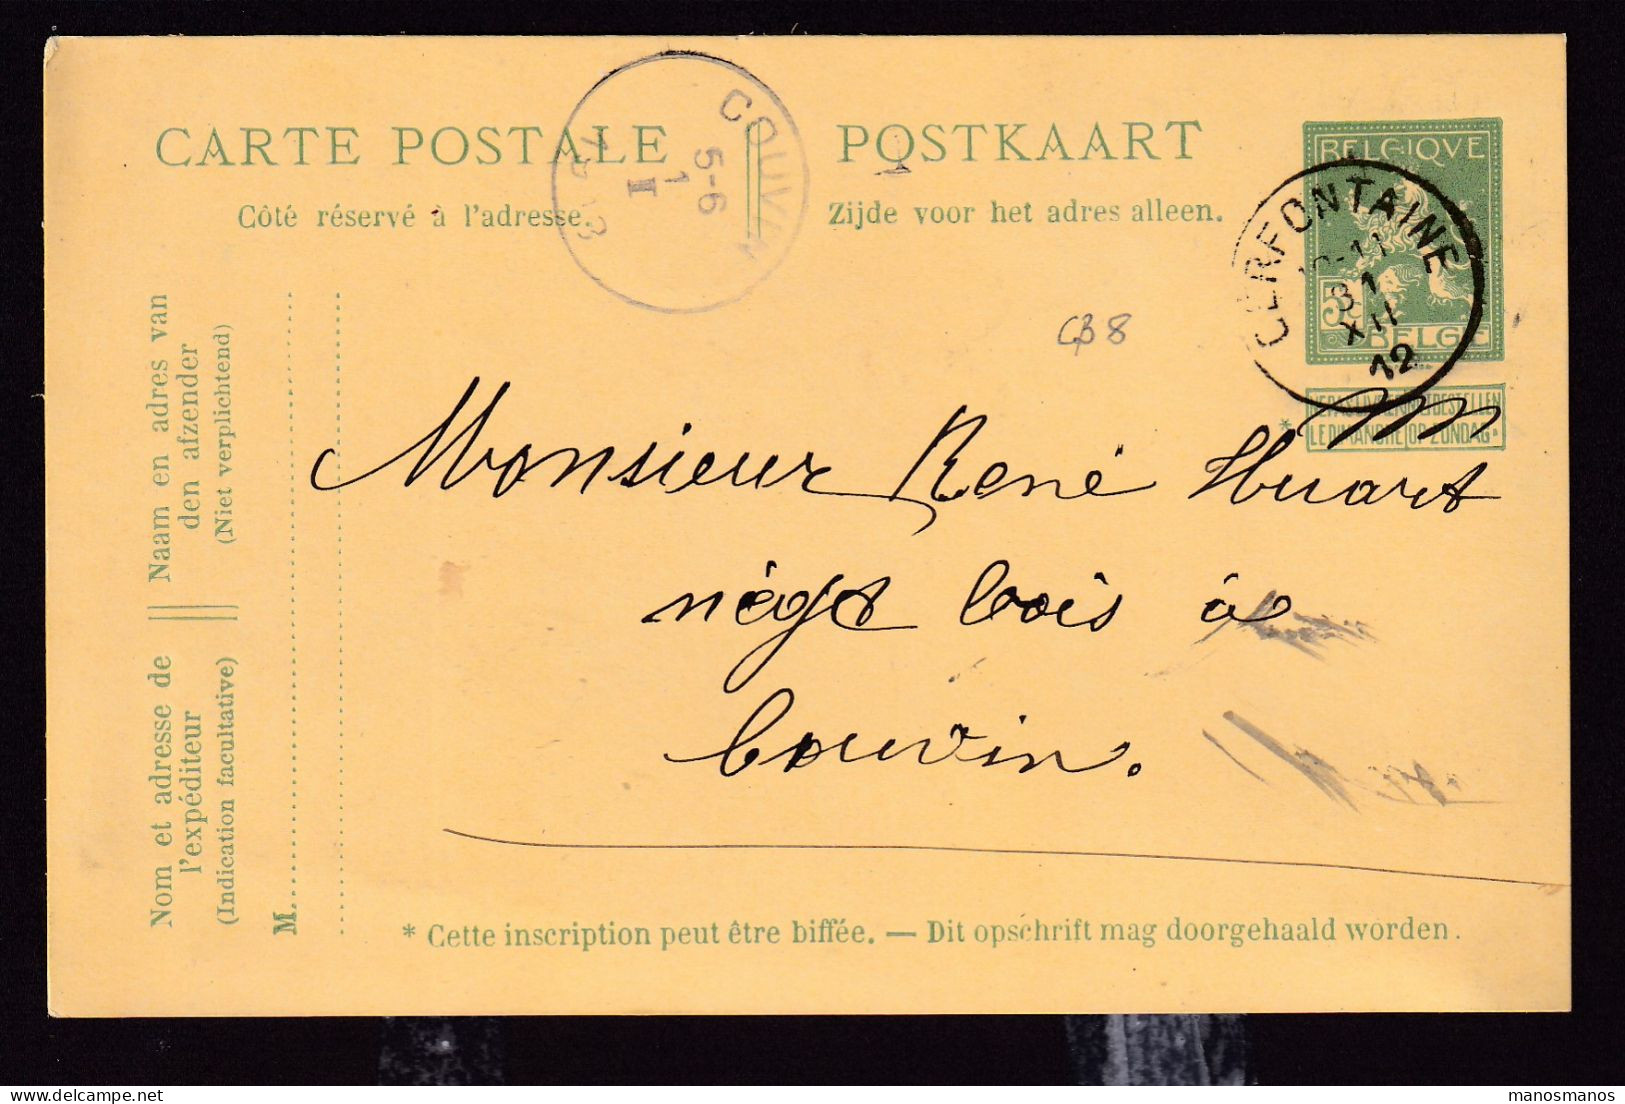 CARTE POSTALE
POSTKAART
Côté réservé à l'adresse.
Zijde voor het adres alleen.
COUVIN
5-6
1
I
1913
BELGIQVE
5
BELGIE
CERFONTAINE
10-11
31
XII
12
NE PAS LIVRER NIET BESTELLEN
* LE DIMANCHE OP ZONDAG *
Naam en adres van
den afzender
(Niet verplichtend)
Nom et adresse de
l'expéditeur
(Indication facultative)
M.
Monsieur René Huart
négt bois à
Couvin.
* Cette inscription peut être biffée. — Dit opschrift mag doorgehaald worden.
manosmanos